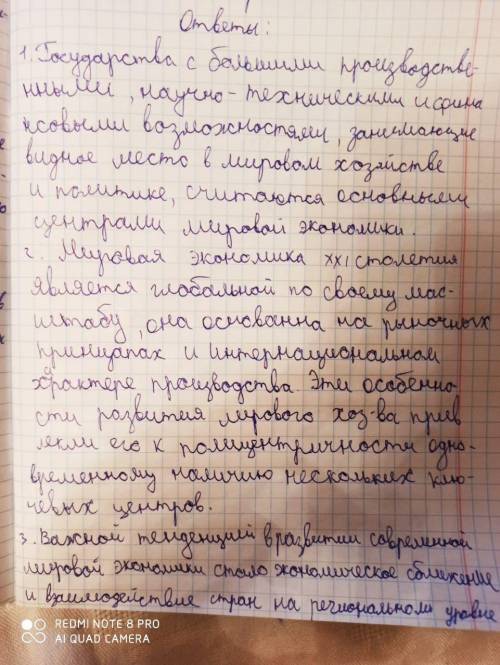 Ответы:
1. Государства с большими производстве-
нными, научно-техническими и фина
нсовыми возможностями, занимающие
видное место в мировом хозяйстве
и политике, считаются основными
центрами мировой экономики.
2. Мировая экономика XXI столетия
является глобальной по своему мас-
штабу, она основанна на рыночных
принципах и интернациональном
характере производства. Эти особенно
сти развития мирового хоз-ва прив
лекли его к полицентричности одно-
временному наличию нескольких клю-
чевых центров.
3. Важной тенденцией в развитии современной
мировой экономики стало экономическое сближение
и взаимодействие стран на региональном уровне
REDMI NOTE 8 PRO
AI QUAD CAMERA